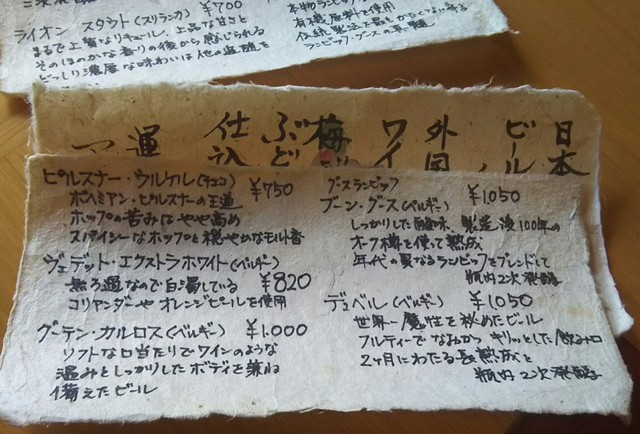 ライオン スタウト(スリランカ) ¥700
まるで上質なリキュール。上品な甘さと
そのほのかな香りの後から感じられる
どっしり濃厚な味わいは他の追随を
有機原料を使用
日本
ビール
外国
ワイ
梅
ぶど
仕込
運
ピルスナー・ウルケル(チェコ) ¥750
ボヘミアン・ピルスナーの王道
ホップの苦みはやや高め
スパイシーなホップと穏やかなモルト香
ヴェデット・エクストラホワイト(ベルギー)
無ろ過なので白濁している ¥820
コリアンダーやオレンジピールを使用
グーテン・カルロス(ベルギー) ¥1.000
ソフトな口当たりでワインのような
温みとしっかりしたボディを兼ね
備えたビール
グースランビック
ブーン・グース(ベルギー) ¥1.050
しっかりした酸味 製造後100年の
オーク樽を使って熟成
年代の異なるランビックをブレンドして
瓶内2次発酵
デュベル(ベルギー) ¥1.050
世界一魔性を秘めたビール
フルーティーでなめらか キリッとした飲み口
2ヶ月にわたる長い熟成と
瓶内2次発酵